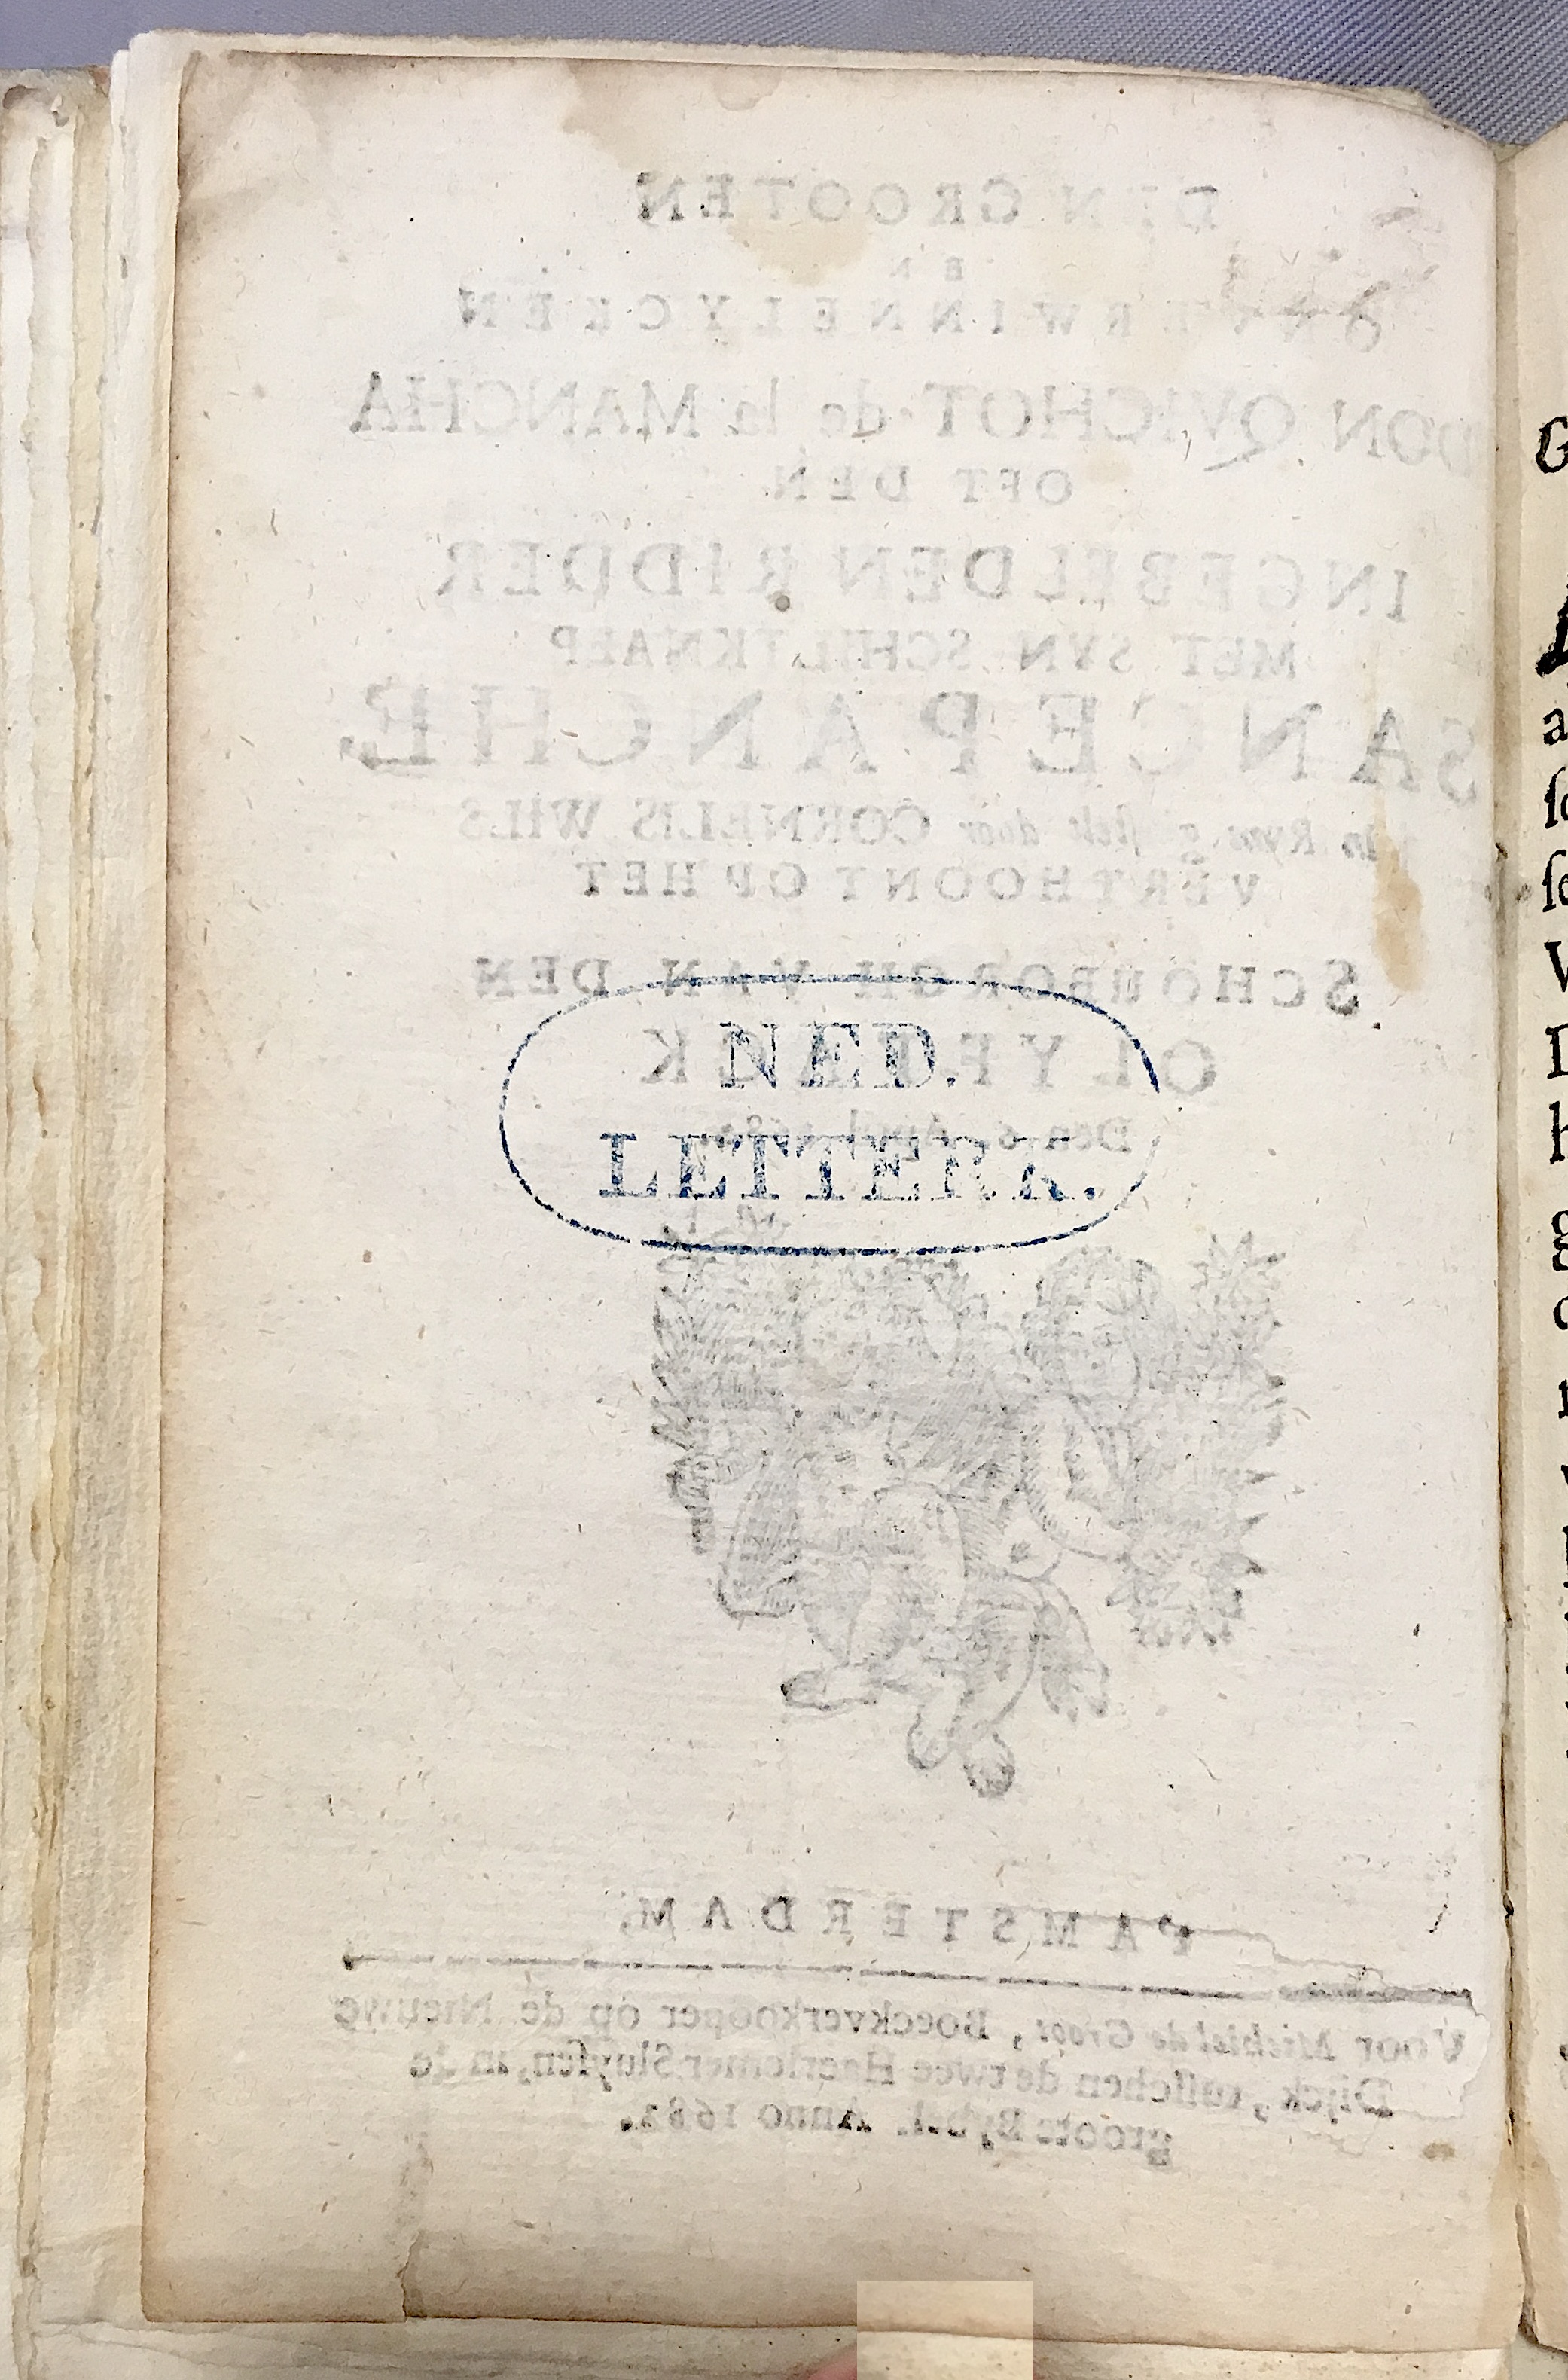 DEN GROOTEN
EN
ONVERWINNELYCKEN
DON QVICHOT de la MANCHA
OFT DEN
INGEBELDEN RIDDER
MET SYN SCHILTKNAEP
SANCE PANCHE,
In Ryme gestelt door CORNELIS WILS
VERTHOONT OP HET
SCHOUBORGH VAN DEN
OLYFTACK
NED.
Den
t'AMSTERDAM,
Voor Michiel de Groot, Boeckverkooper op de Nieuwe
Dijck, tuſſchen de twee Haerlemer Sluyſen, in de
groote Bybel. Anno 1682.